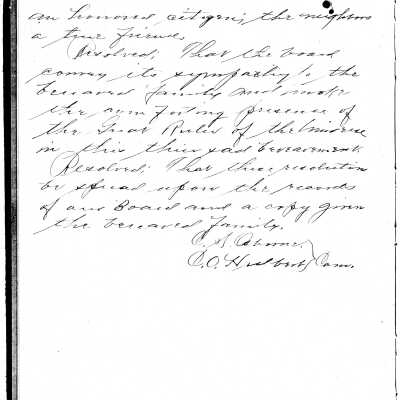 an honored citizen, the neighbors
a true friend.
Resolved; That the board
convey its sympathy to the
bereaved family and invoke
the comforting presence of
the Great Ruler of the Universe
in this their sad bereavement.
Resolved; That these resolution
be spread upon the records
of our Board and a copy given
the bereaved family.
C. S.
C. O. Hulbert Com.